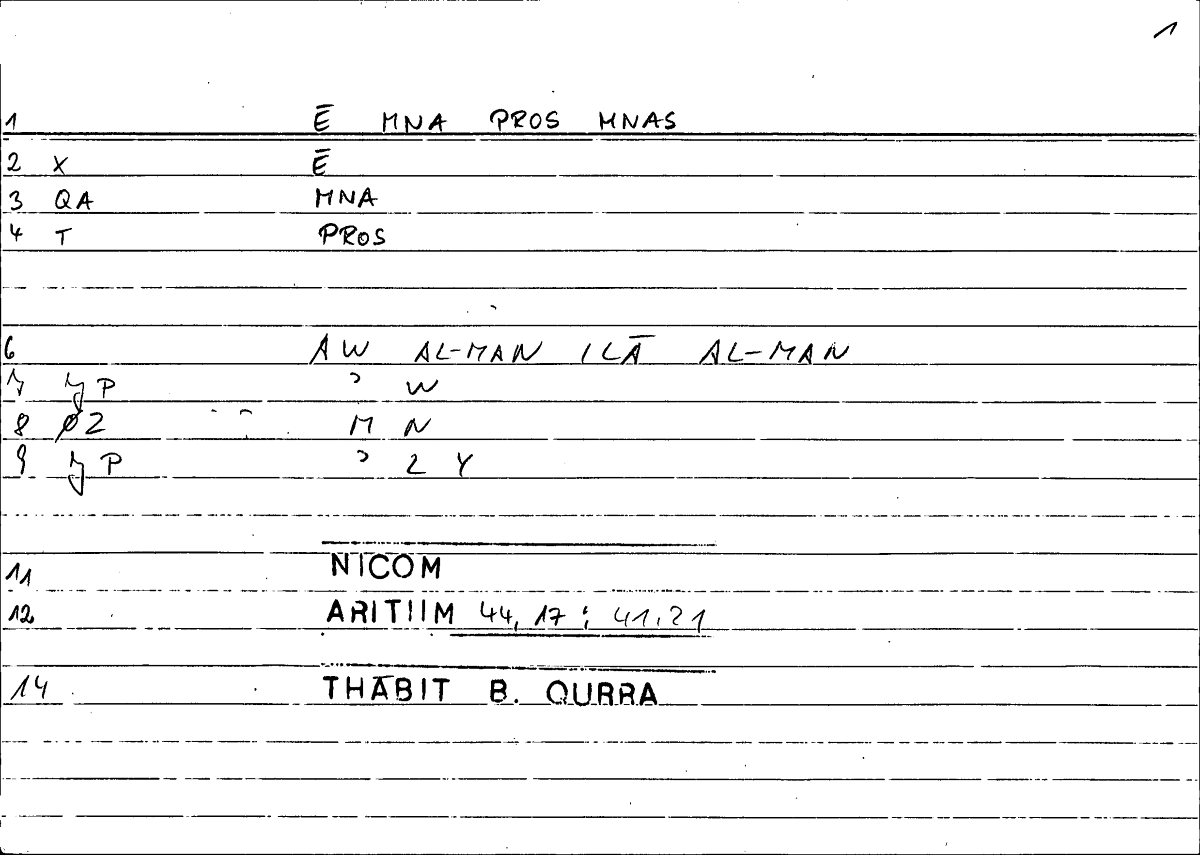 1
1 Ē MNA PROS MNAS
2 X Ē
3 QA MNA
4 T PROS
6 AW AL-MAN ILĀ AL-MAN
7 P ʾ W
8 ØZ M N
9 P ʾ L Y
11 NICOM
12 ARITHM 44, 17 ; 41,21
14 THĀBIT B. QURRA